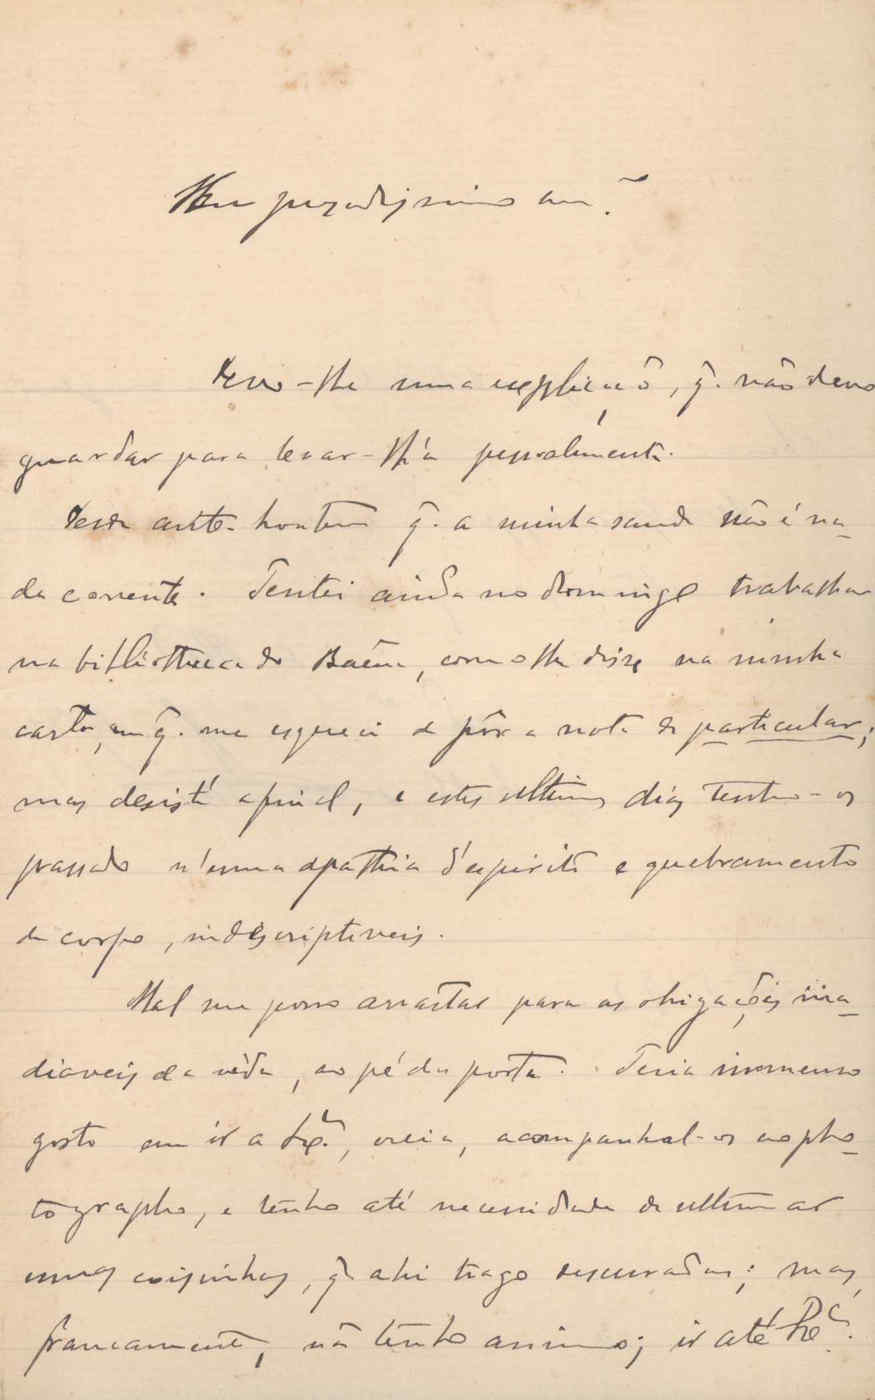 Meu presadissimo am.º
Devo-lhe uma explicação, q̃. não devo
guardar para levar-lh'a pessoalmente.
Desde ante-hontem q̃. a minha saude não é na-
da corrente. Tentei ainda no domingo trabalhar
na bibliotheca do Baêna, como lhe disse na minha
carta, em q̃. me esqueci de pôr a nota de particular;
mas desisti afinal, e estes ultimos dias tenho-os
passado n'uma apathia d'espirito e quebramento
de corpo, indescriptiveis.
Mal me posso arrastar para as obrigações ina-
diaveis da vida, ao pé da porta. Teria immenso
gosto em ir a Lxª., creia, acompanhal-os ao pho-
tographo, e tenho até necessidade de ultimar
umas coisinhas, q̃ ahi trago descuradas; mas,
francamente, não tenho animo; ir até